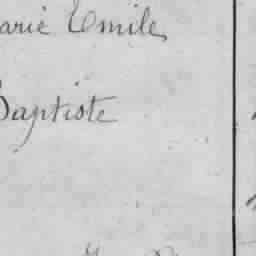 arie Emile
Baptiste